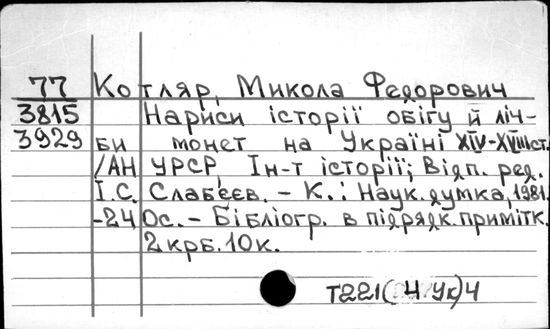 77 Котляр, Микола Федорович
3815 Нариси історії обігу й ліч-
3929 би монет на Україні XIV-XVIIIст.
/АН УРСР, Ін-т історії; Відп. ред.
І.С. Слабєєв. - К.: Наук. думка, 1981.
-240с. - Бібліогр. в підрядк. примітк.
2крб. 10к.
Т221(4Ук)4